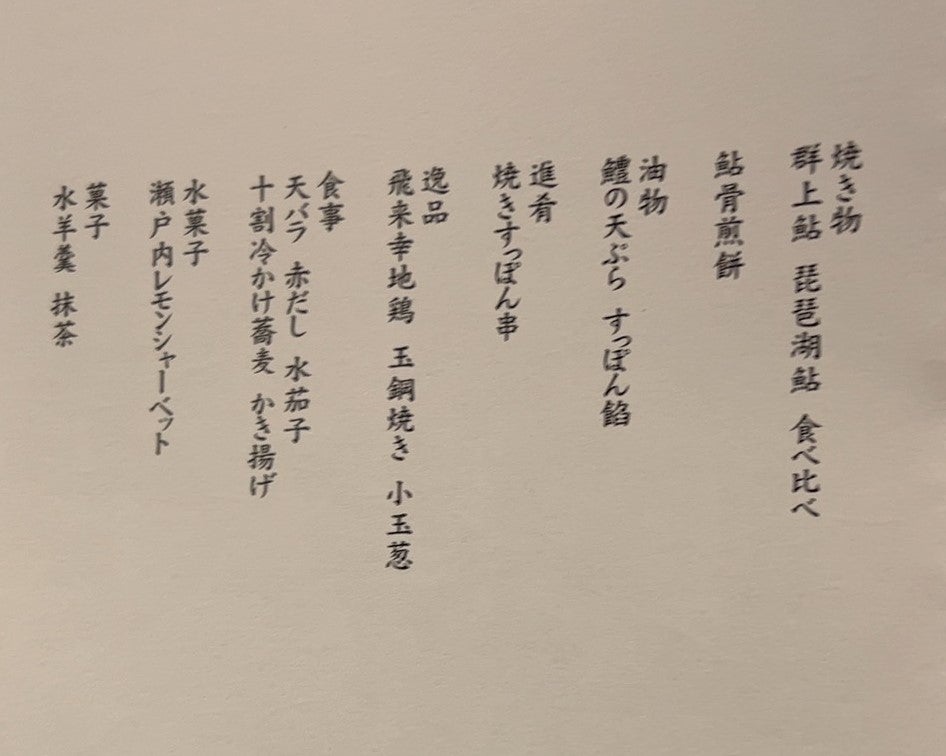 焼き物
群上鮎 琵琶湖鮎 食べ比べ
鮎骨煎餅
油物
鱧の天ぷら すっぽん餡
進肴
焼きすっぽん串
逸品
飛来幸地鶏 玉鋼焼き 小玉葱
食事
天バラ 赤だし 水茄子
十割冷かけ蕎麦 かき揚げ
水菓子
瀬戸内レモンシャーベット
菓子
水羊羹 抹茶